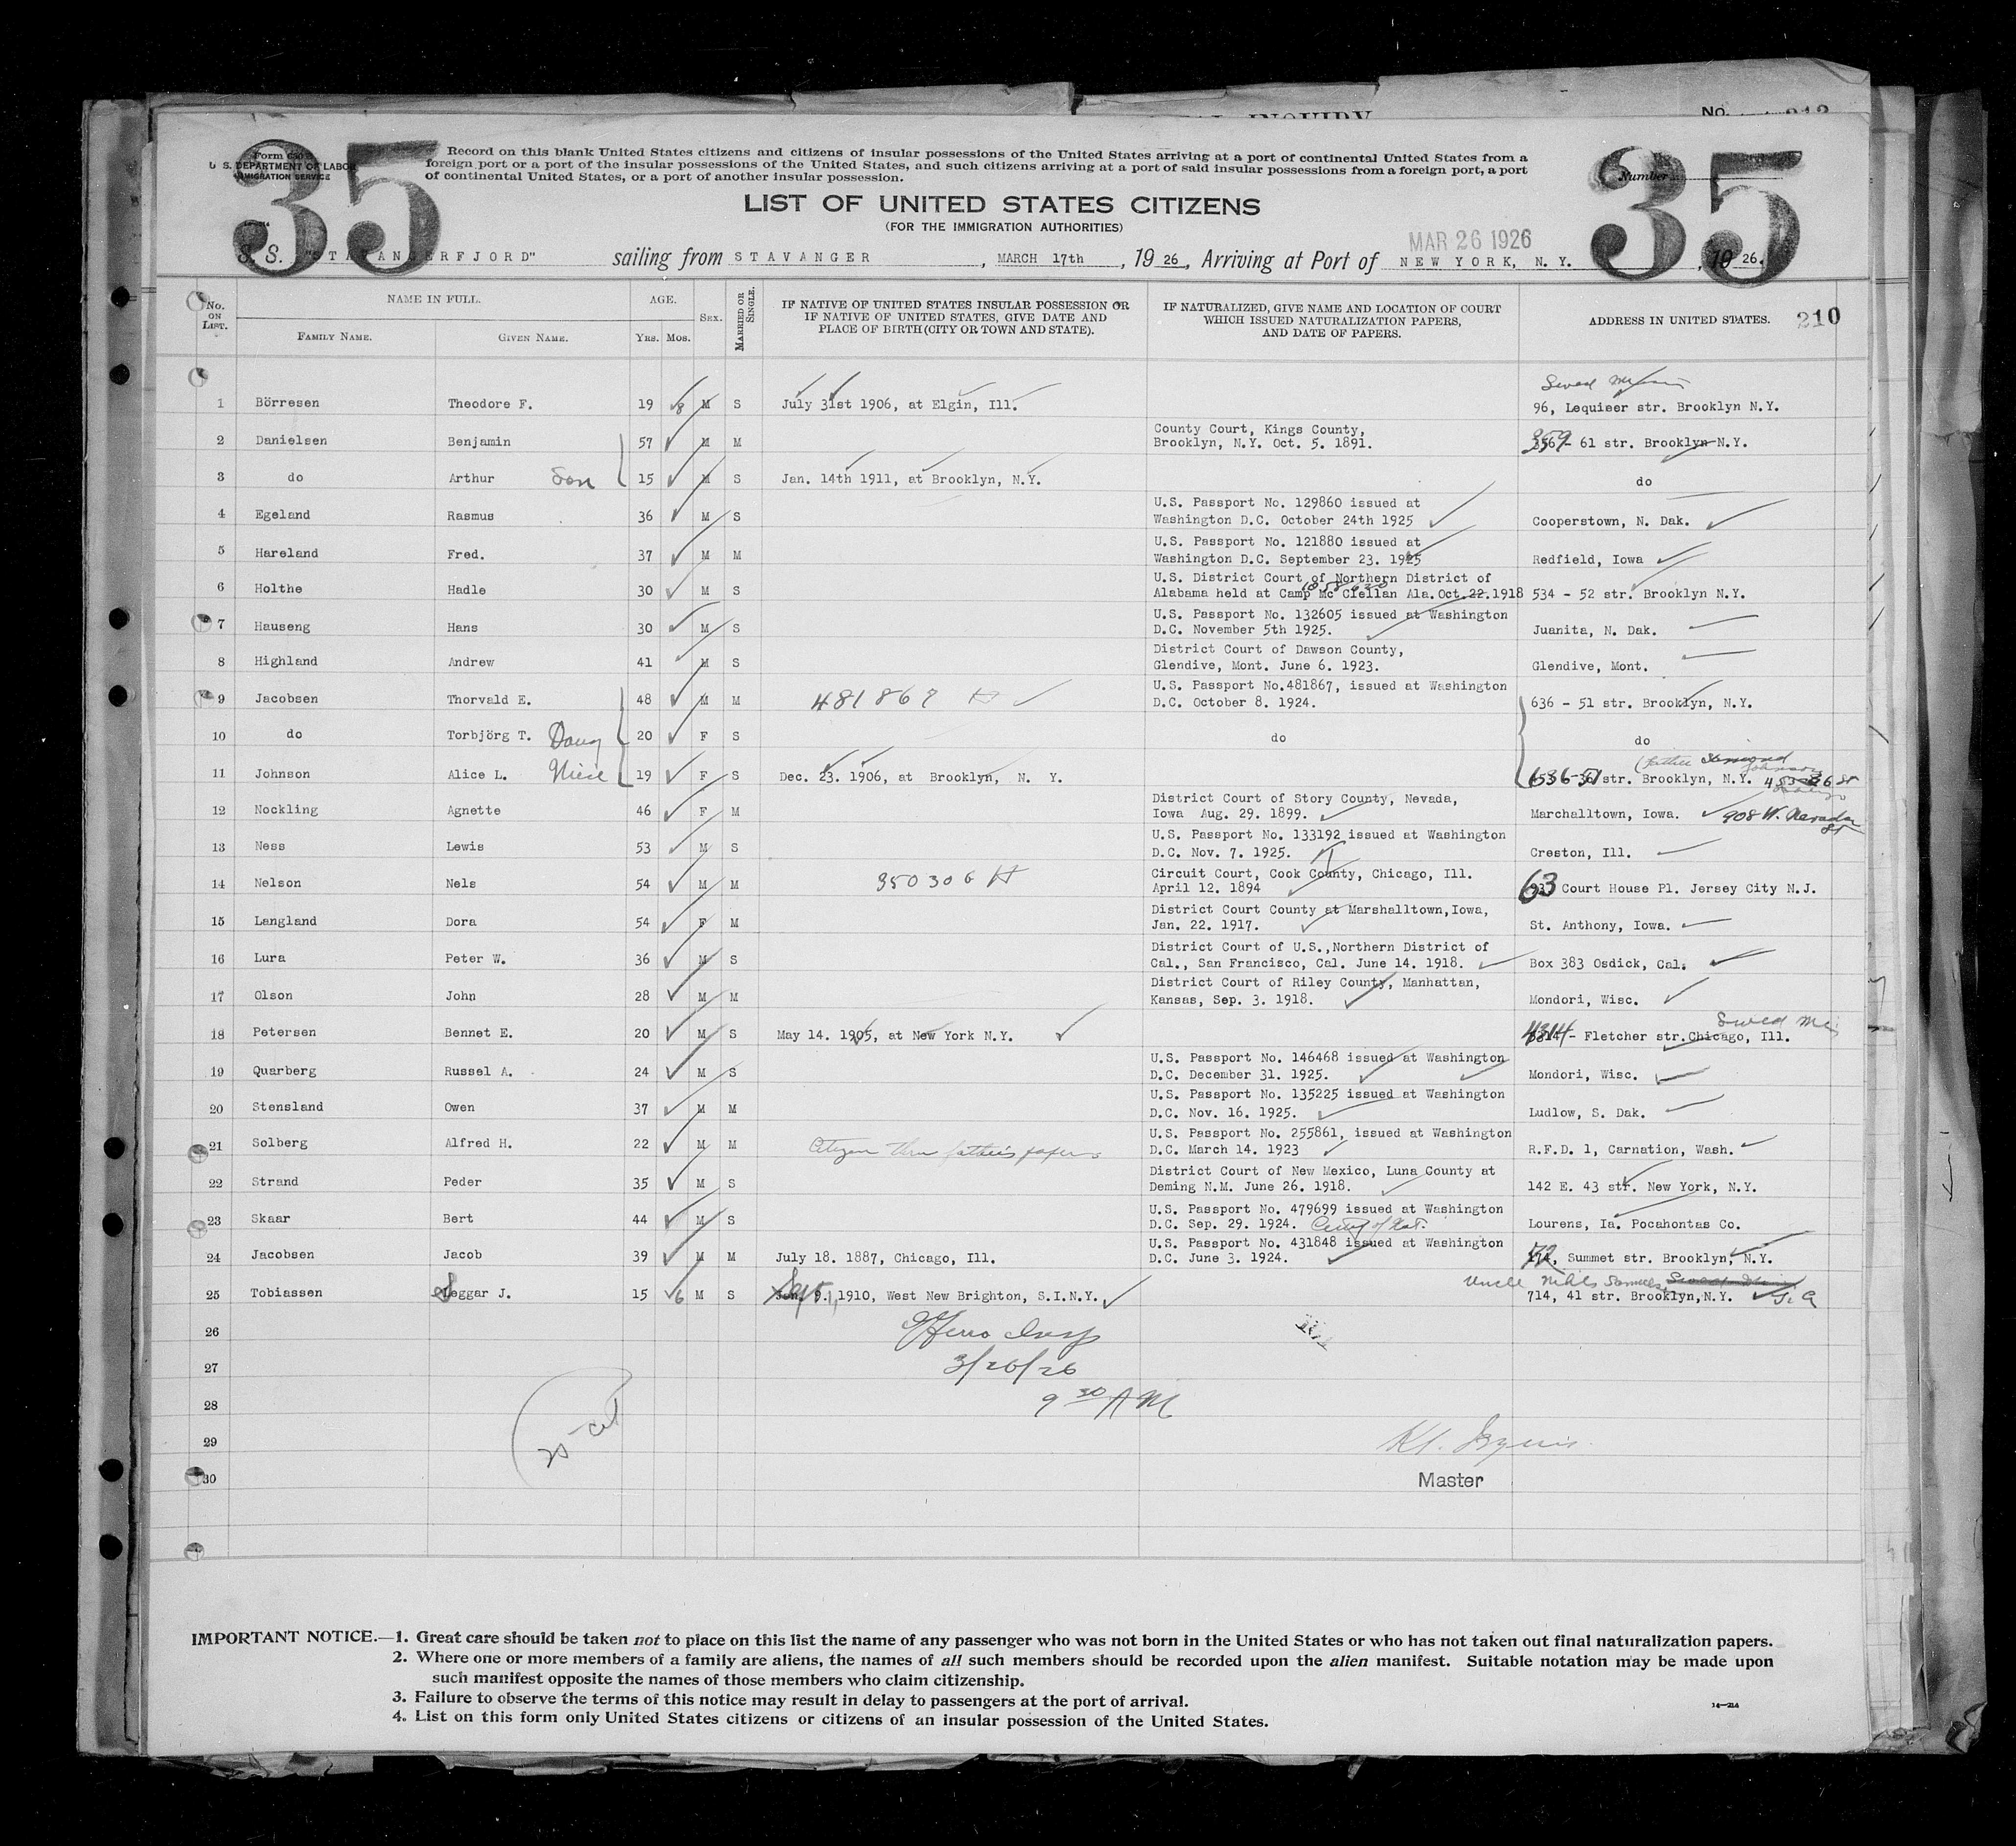 AL INQUIRY
No. 213
35
35
Form 630
U. S. DEPARTMENT OF LABOR
IMMIGRATION SERVICE
Number
Record on this blank United States citizens and citizens of insular possessions of the United States arriving at a port of continental United States from a
foreign port or a port of the insular possessions of the United States, and such citizens arriving at a port of said insular possessions from a foreign port, a port
of continental United States, or a port of another insular possession.
LIST OF UNITED STATES CITIZENS
(FOR THE IMMIGRATION AUTHORITIES)
MAR 26 1926
S. S. "STAVANGERFJORD" sailing from STAVANGER, MARCH 17th, 1926, Arriving at Port of NEW YORK, N. Y., 1926.
No. ON LIST. NAME IN FULL. FAMILY NAME. GIVEN NAME. AGE. YRS. MOS. SEX. MARRIED OR SINGLE. IF NATIVE OF UNITED STATES INSULAR POSSESSION OR IF NATIVE OF UNITED STATES, GIVE DATE AND PLACE OF BIRTH (CITY OR TOWN AND STATE). IF NATURALIZED, GIVE NAME AND LOCATION OF COURT WHICH ISSUED NATURALIZATION PAPERS, AND DATE OF PAPERS. ADDRESS IN UNITED STATES. 210
1 Börresen Theodore F. 19 8 M S July 31st 1906, at Elgin, Ill. 96, Lequieer str. Brooklyn N.Y.
2 Danielsen Benjamin 57 M M County Court, Kings County, Brooklyn, N.Y. Oct. 5. 1891. 359 - 61 str. Brooklyn N.Y.
3 do Arthur Son 15 M S Jan. 14th 1911, at Brooklyn, N.Y. do
4 Egeland Rasmus 36 M S U.S. Passport No. 129860 issued at Washington D.C. October 24th 1925 Cooperstown, N. Dak.
5 Hareland Fred. 37 M M U.S. Passport No. 121880 issued at Washington D.C. September 23. 1925 Redfield, Iowa
6 Holthe Hadle 30 M S U.S. District Court of Northern District of Alabama held at Camp Mc Clellan Ala. Oct. 22. 1918 534 - 52 str. Brooklyn N.Y.
7 Hauseng Hans 30 M S U.S. Passport No. 132605 issued at Washington D.C. November 5th 1925. Juanita, N. Dak.
8 Highland Andrew 41 M S District Court of Dawson County, Glendive, Mont. June 6. 1923. Glendive, Mont.
9 Jacobsen Thorvald E. 48 M M 481867 U.S. Passport No.481867, issued at Washington D.C. October 8. 1924. 636 - 51 str. Brooklyn, N.Y.
10 do Torbjörg T. Daug 20 F S do do
11 Johnson Alice L. Niece 19 F S Dec. 23. 1906, at Brooklyn, N. Y. 636-51 str. Brooklyn, N.Y. (Father Johnson
12 Nockling Agnette 46 F M District Court of Story County, Nevada, Iowa Aug. 29. 1899. Marchalltown, Iowa. 908 W. Nevada St
13 Ness Lewis 53 M S U.S. Passport No. 133192 issued at Washington D.C. Nov. 7. 1925. Creston, Ill.
14 Nelson Nels 54 M M 350306 Circuit Court, Cook County, Chicago, Ill. April 12. 1894 63 Court House Pl. Jersey City N.J.
15 Langland Dora 54 F M District Court County at Marshalltown, Iowa, Jan. 22. 1917. St. Anthony, Iowa.
16 Lura Peter W. 36 M S District Court of U.S., Northern District of Cal., San Francisco, Cal. June 14. 1918. Box 383 Osdick, Cal.
17 Olson John 28 M M District Court of Riley County, Manhattan, Kansas, Sep. 3. 1918. Mondori, Wisc.
18 Petersen Bennet E. 20 M S May 14. 1905, at New York N.Y. 4314 - Fletcher str. Chicago, Ill.
19 Quarberg Russel A. 24 M S U.S. Passport No. 146468 issued at Washington D.C. December 31. 1925. Mondori, Wisc.
20 Stensland Owen 37 M M U.S. Passport No. 135225 issued at Washington D.C. Nov. 16. 1925. Ludlow, S. Dak.
21 Solberg Alfred H. 22 M M Citizen thru father's papers U.S. Passport No. 255861, issued at Washington D.C. March 14. 1923 R.F.D. 1, Carnation, Wash.
22 Strand Peder 35 M S District Court of New Mexico, Luna County at Deming N.M. June 26. 1918. 142 E. 43 str. New York, N.Y.
23 Skaar Bert 44 M S U.S. Passport No. 479699 issued at Washington D.C. Sep. 29. 1924. Lourens, Ia. Pocahontas Co.
24 Jacobsen Jacob 39 M M July 18. 1887, Chicago, Ill. U.S. Passport No. 431848 issued at Washington D.C. June 3. 1924. Summet str. Brooklyn, N.Y.
25 Tobiassen Leggar J. 15 6 M S 1910, West New Brighton, S.I.N.Y. Uncle 714, 41 str. Brooklyn, N.Y.
26
27 3/26/26
28 9 30 AM
29
30
Master
IMPORTANT NOTICE.—1. Great care should be taken not to place on this list the name of any passenger who was not born in the United States or who has not taken out final naturalization papers.
2. Where one or more members of a family are aliens, the names of all such members should be recorded upon the alien manifest. Suitable notation may be made upon
such manifest opposite the names of those members who claim citizenship.
3. Failure to observe the terms of this notice may result in delay to passengers at the port of arrival.
4. List on this form only United States citizens or citizens of an insular possession of the United States.
14—214